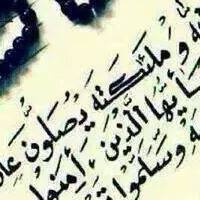 وَمَلَٰئِكَتَهُ يُصَلُّونَ
يَٰأَيُّهَا الَّذِينَ ءَامَنُوا
وَسَلِّمُوا